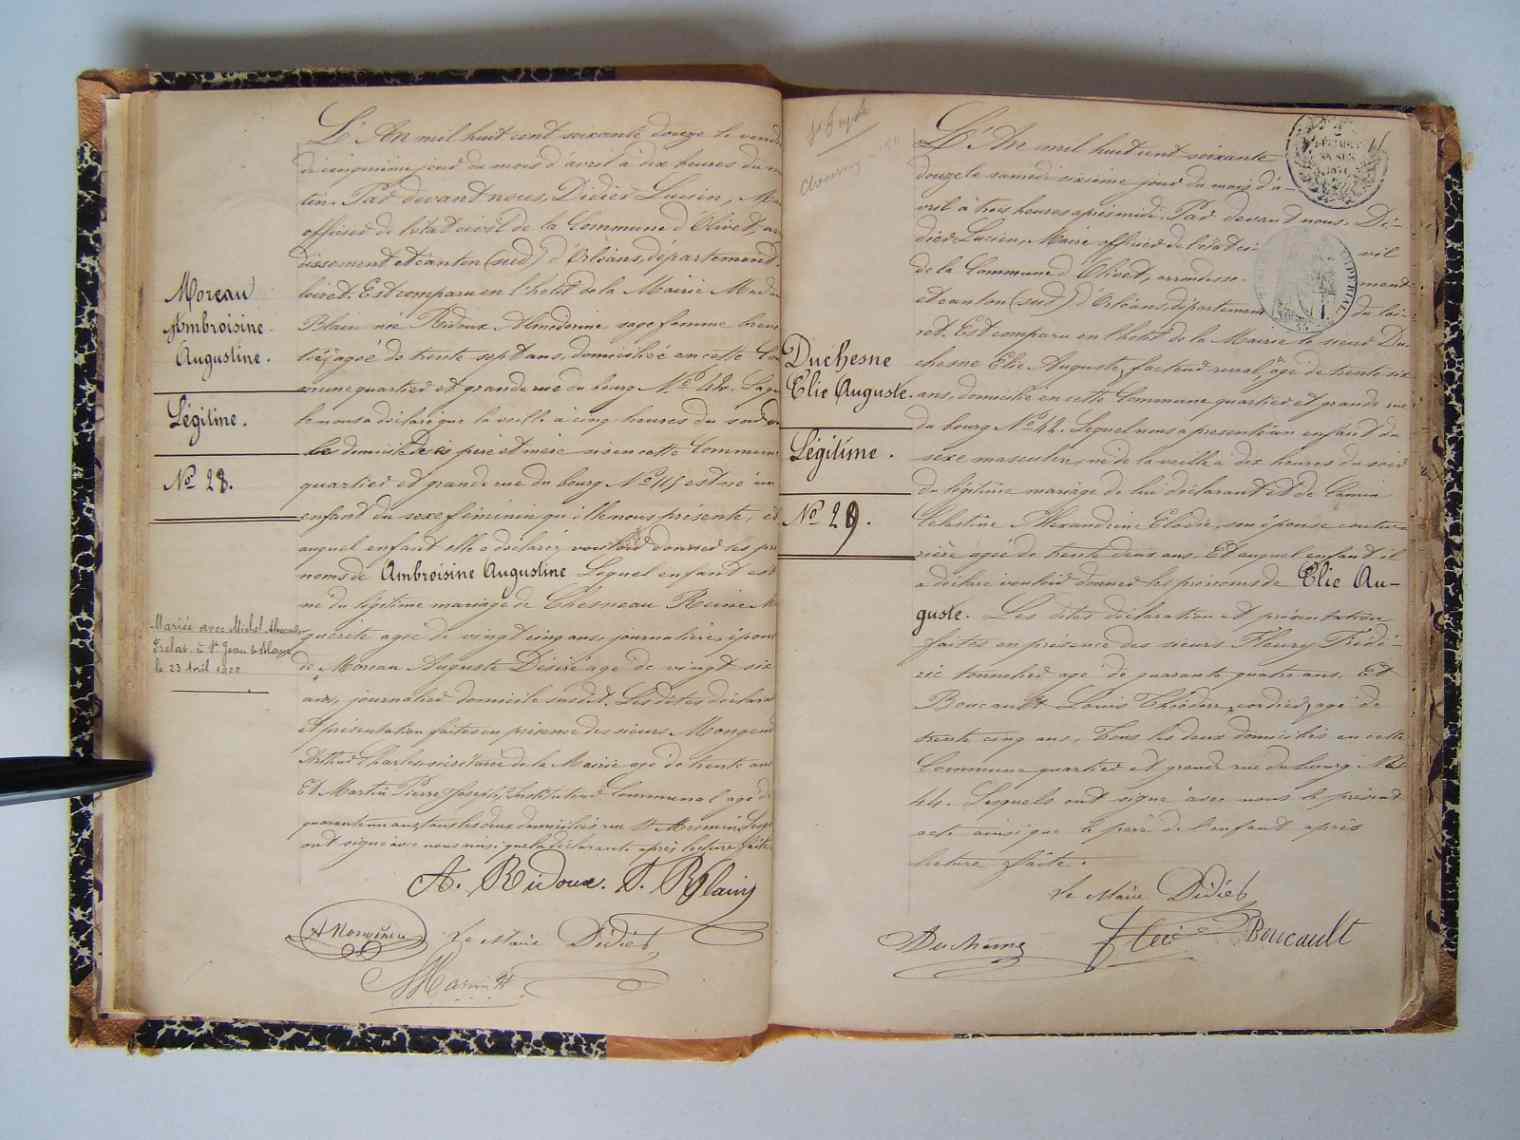 Moreau
Ambroisine
Augustine.
Légitime.
Nº 28.
Mariée avec Michel
à St Jean
le 23 Avril 1922
L'An mil huit cent soixante douze le vend
cinquième jour du mois d'avril à dix heures du m
tin. Par devant nous, Didier Lucien, Ma
officier de l'état civil de la Commune d'Olivet, ar
dissement et canton (sud) d'Orléans, département
loiret. Est comparu en l'hôtel de la Mairie Madam
Blain née Ridoux sage femme breve
tée, agée de trente sept ans, domiciliée en cette Co
mune quartier et grande rue du bourg Nº Laqu
le nous a déclaré que la veille à cinq heures du soir
le domicile de ses père et mère sis en cette Commune
quartier et grande rue du bourg Nº 115 est né un
enfant du sexe féminin qu'elle nous présente, et
auquel enfant elle a déclaré vouloir donner les pré
noms de Ambroisine Augustine Lequel enfant est
né du légitime mariage de Chesneau Reine
agée de vingt cinq ans, journalière, épouse
de Moreau Auguste Désiré agé de vingt six
ans, journalier domicile susdit. Les dites déclara
et présentation faites en présence des sieurs
Arthur Charles secrétaire de la Mairie agé de trente ans
Et Martin Pierre Joseph, Instituteur Communal agé de
quarante un ans, tous les deux domiciliés rue St Mesmin,
ont signé avec nous ainsi que la déclarante après lecture faite.
A. Ridoux. F. Blain
Le Maire Didier
Martin
Duchesne
Elie Auguste.
Légitime.
Nº 29.
L'An mil huit cent soixante
douze le samedi sixième jour du mois d'a-
vril à trois heures après midi. Par devant nous. Di-
dier Lucien, Maire officier de l'état ci- vil
de la Commune d'Olivet, arrondisse- ment
et canton (sud) d'Orléans, département du loi-
ret. Est comparu en l'hôtel de la Mairie le sieur Du
chesne Elie Auguste, facteur rural, agé de trente six
ans, domicilié en cette Commune quartier et grande rue
du bourg Nº 42. Lequel nous a présenté un enfant du
sexe masculin, né de la veille à dix heures du soir
du légitime mariage de lui déclarant et de
Célestine Alexandrine Elodie, son épouse coutu-
rière agée de trente deux ans. Et auquel enfant il
a déclaré vouloir donner les prénoms de Elie Au-
guste. Les dites déclaration et présentation
faites en présence des sieurs Fleury Frédé-
ric tonnelier agé de quarante quatre ans. Et
Boucault Louis Théodore, cordier, agé de
trente cinq ans, tous les deux domiciliés en cette
Commune quartier et grande rue du bourg
44. Lesquels ont signé avec nous le présent
acte ainsi que le père de l'enfant après
lecture faite.
Le Maire Didier
Duchesne
Boucault